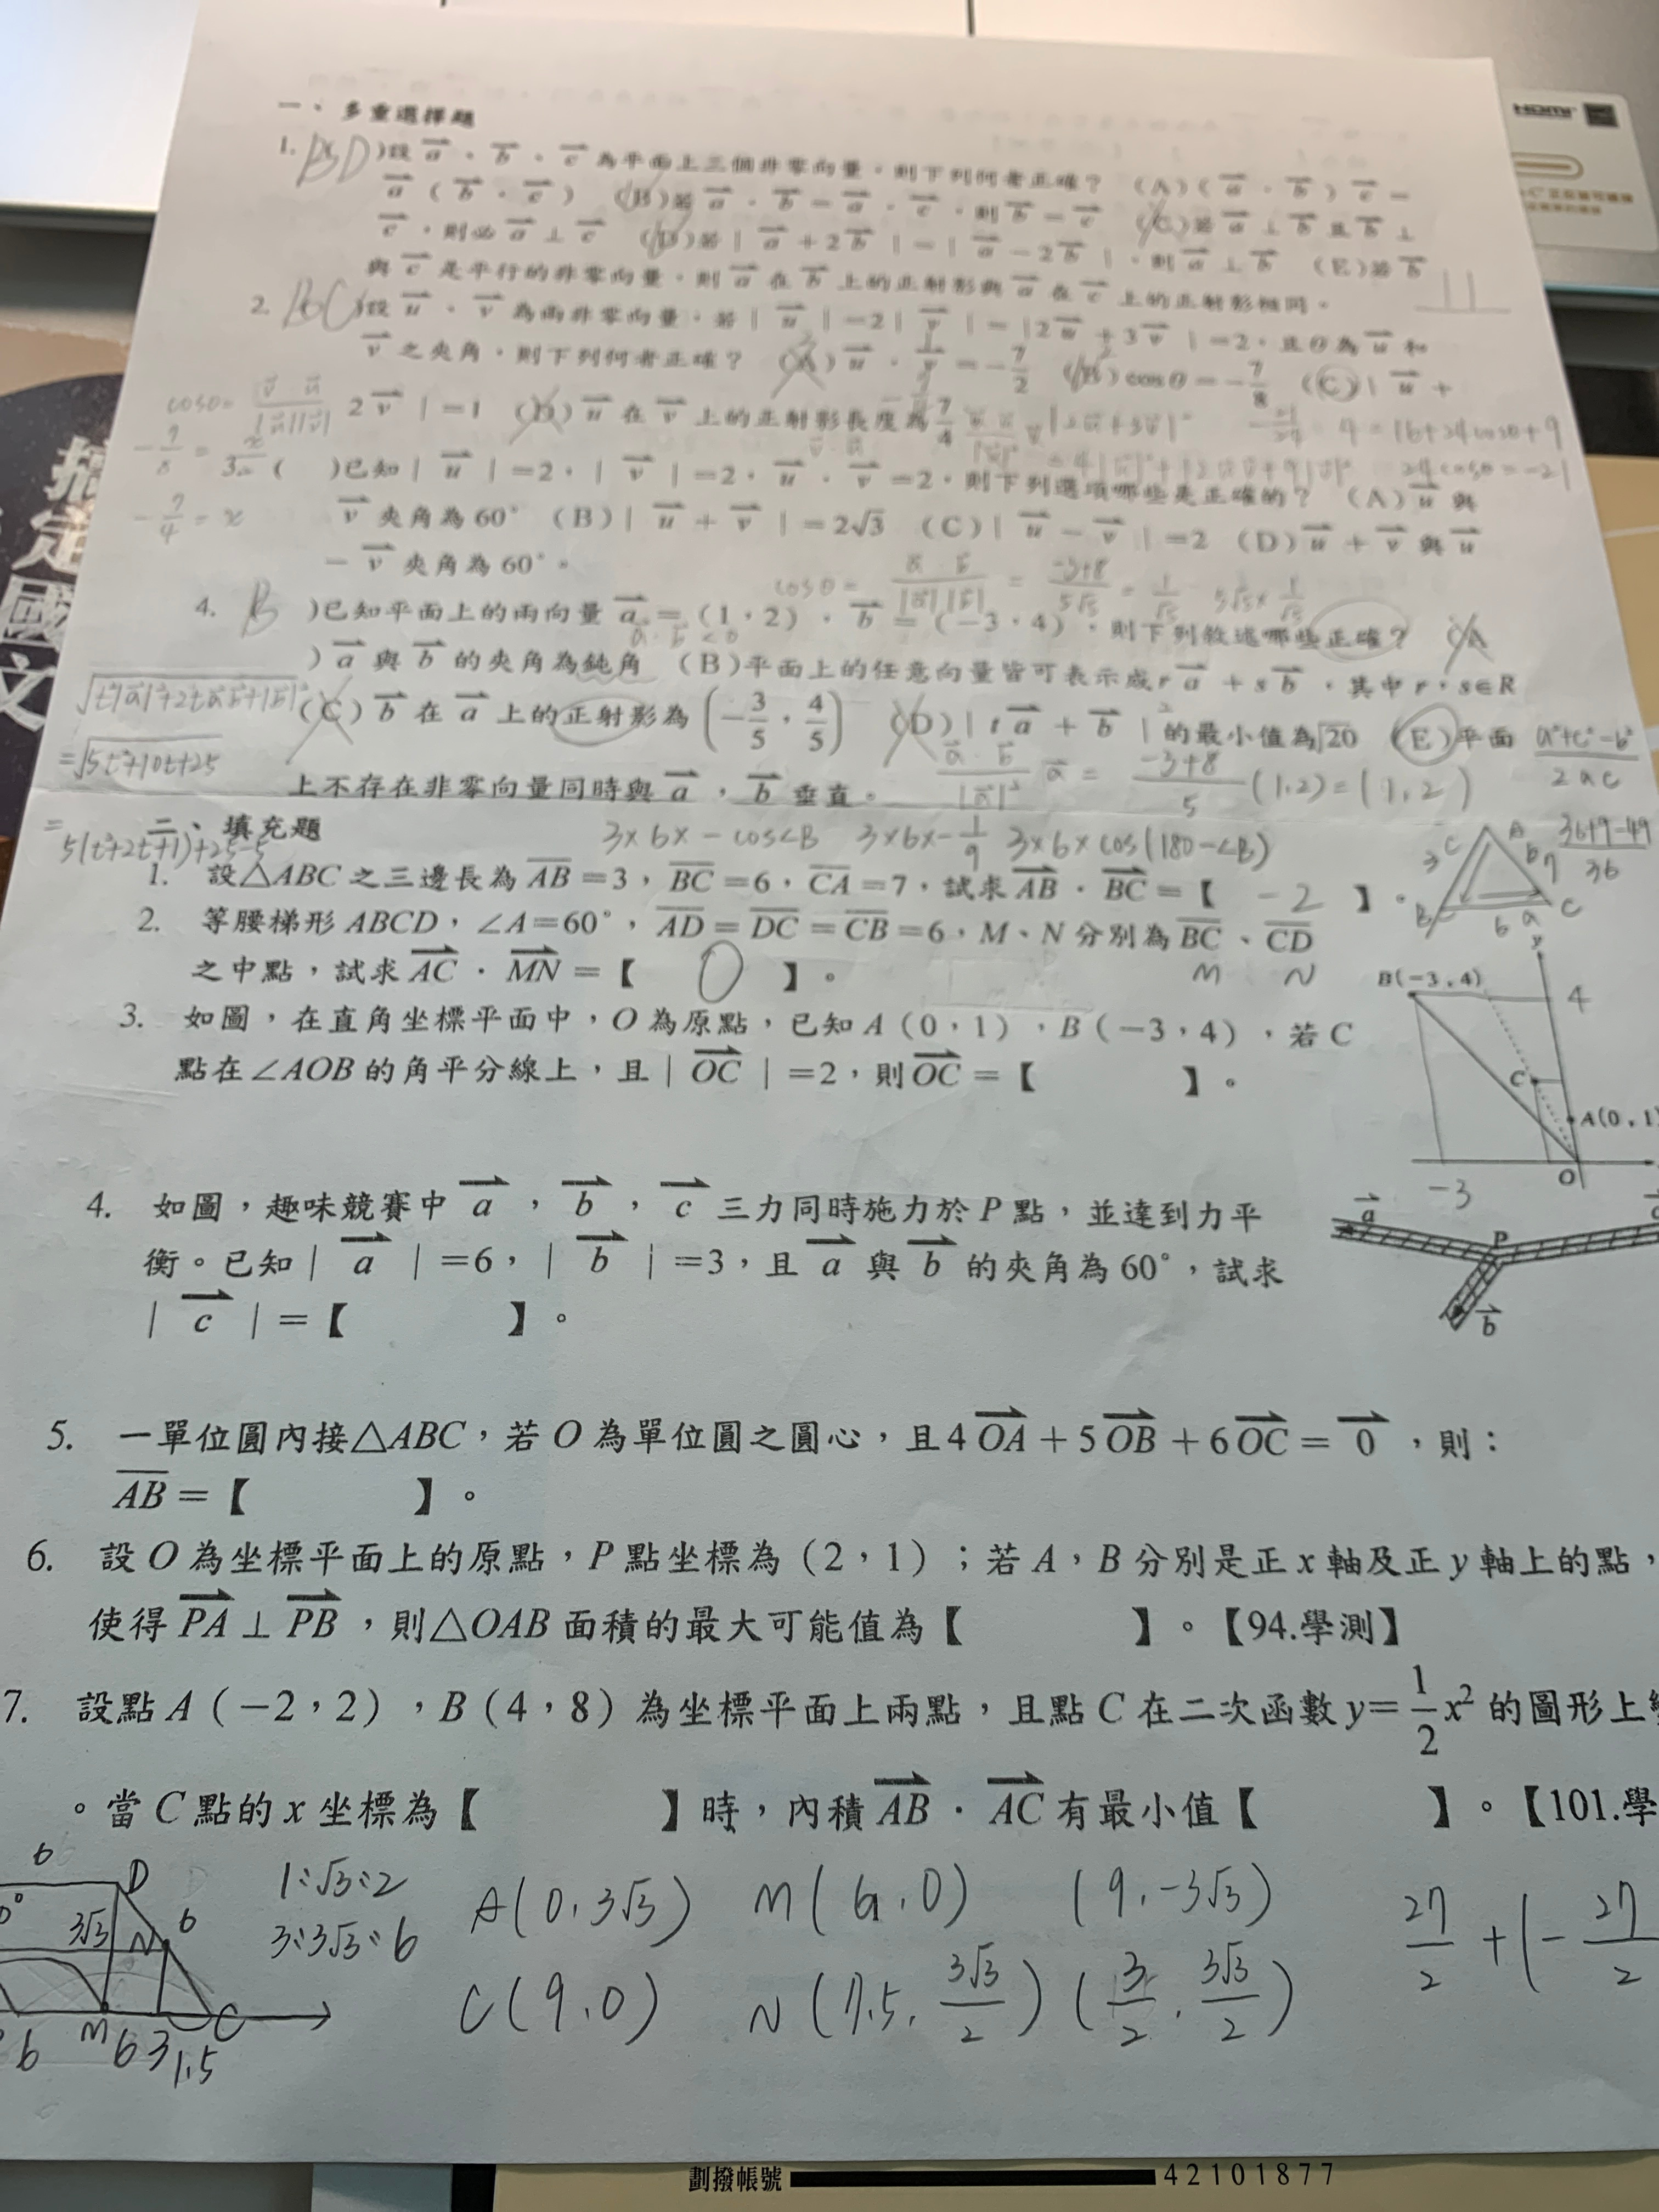 一、多重選擇題
1. BD )設 a、b、c 為平面上三個非零向量,則下列何者正確? (A)(a.b)c=
a(b.c) (B)若 a.b=a.c,則 b=c (C)若 a⊥b 且 b⊥
c,則必 a⊥c (D)若|a+2b|=|a-2b|,則 a⊥b (E)若 b
與 c 是平行的非零向量,則 a 在 b 上的正射影與 a 在 c 上的正射影相同。
2. BC )設 u、v 為兩非零向量,若|u|=2|v|=|2u+3v|=2,且θ為 u 和
v 之夾角,則下列何者正確? (A)u.v=-7/2 (B)cosθ=-7/8 (C)|u+
2v|=1 (D)u 在 v 上的正射影長度為 7/4
cosθ= v.u/|u||v|
|2u+3v|² 4=16+24cosθ+9
=4|u|²+12u.v+9|v|² 24cosθ=-21
( )已知|u|=2,|v|=2,u.v=2,則下列選項哪些是正確的? (A)u 與
v 夾角為60° (B)|u+v|=2√3 (C)|u-v|=2 (D)u+v 與 u
-7/4=x
-v 夾角為60°。
cosθ= a.b/|a||b| = -3+8/5√5 = 1/√5 5√5× 1/√5
4. B )已知平面上的兩向量 a=(1,2),b=(-3,4),則下列敘述哪些正確? (A
a.b<0
)a 與 b 的夾角為鈍角 (B)平面上的任意向量皆可表示成 ra+sb,其中 r,s∈R
√t²|a|²+2ta.b+|b|²
(C)b 在 a 上的正射影為(-3/5,4/5) (D)|ta+b|的最小值為√20 (E)平面
=√5t²+10t+25
a²+c²-b²/2ac
上不存在非零向量同時與 a,b 垂直。
a.b/|a|² a = -3+8/5 (1,2)=(1,2)
=5(t²+2t+1)+25-5
二、填充題
3×6×-cos∠B 3×6×-1/9 3×6×cos(180-∠B)
36+9-49/36
1. 設△ABC之三邊長為AB=3,BC=6,CA=7,試求AB.BC=【 -2 】。
3 C A b 7 B 6 a C
2. 等腰梯形ABCD,∠A=60°,AD=DC=CB=6,M、N分別為BC、CD
之中點,試求AC.MN=【 0 】。
M N
3. 如圖,在直角坐標平面中,O為原點,已知A(0,1),B(-3,4),若C
點在∠AOB的角平分線上,且|OC|=2,則OC=【 】。
y
B(-3,4)
4
C
A(0,1
O
-3
4. 如圖,趣味競賽中 a,b,c 三力同時施力於P點,並達到力平
衡。已知|a|=6,|b|=3,且 a 與 b 的夾角為60°,試求
|c|=【 】。
a
P
b
5. 一單位圓內接△ABC,若O為單位圓之圓心,且4OA+5OB+6OC=0,則:
AB=【 】。
6. 設O為坐標平面上的原點,P點坐標為(2,1);若A,B分別是正x軸及正y軸上的點,
使得PA⊥PB,則△OAB面積的最大可能值為【 】。【94.學測】
7. 設點A(-2,2),B(4,8)為坐標平面上兩點,且點C在二次函數y=1/2x²的圖形上
。當C點的x坐標為【 】時,內積AB.AC有最小值【 】。【101.學
6 D
3√3 N 6
6 M 6 3 C
1.5
1:√3:2
3:3√3:6
A(0,3√3) M(6,0) (9,-3√3) 27/2+(-27/2
C(9,0) N(7.5,3√3/2) (3/2,3√3/2)
搞定國文
HDMI
劃撥帳號 42101877